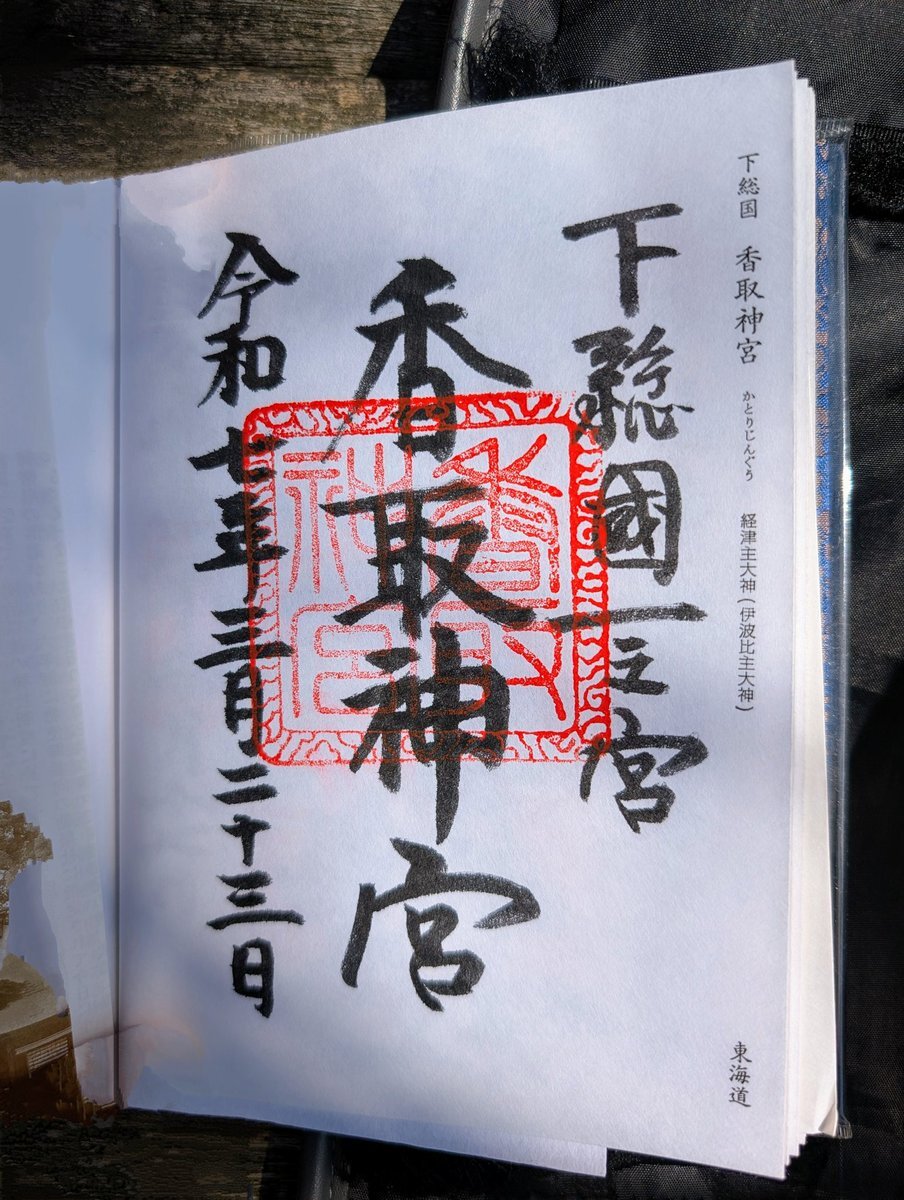 下総国 香取神宮 かとりじんぐう 経津主大神(伊波比主大神)
東海道
下総國一之宮
香取神宮
香取神宮
令和七年三月二十三日